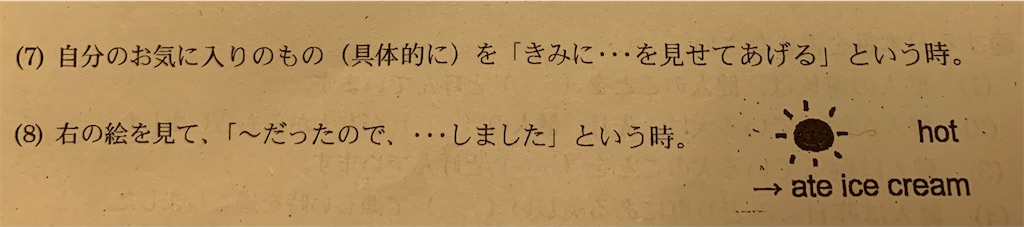 (7) 自分のお気に入りのもの（具体的に）を「きみに・・・を見せてあげる」という時。
(8) 右の絵を見て、「〜だったので、・・・しました」という時。
hot
→ ate ice cream